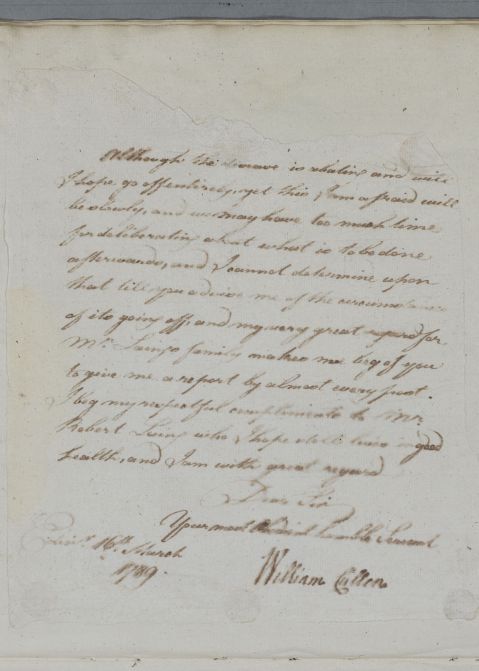 Although the disease is abating and will
I hope go off entirely, yet this I am afraid will
be slowly, and we may have too much time
for deliberating about what is to be done
afterwards, and I cannot determine upon
that till you advise me of the circumstances
of its going off, and my very great regard for
Mr. Laing's family makes me beg of you
to give me a report by almost every post.
I beg my respectful compliments to Mr.
Robert Laing who I hope still in good
health, and I am with great regard
Dear Sir
Your most humble Servant
Edinr. 16th March
1789.
William Cullen